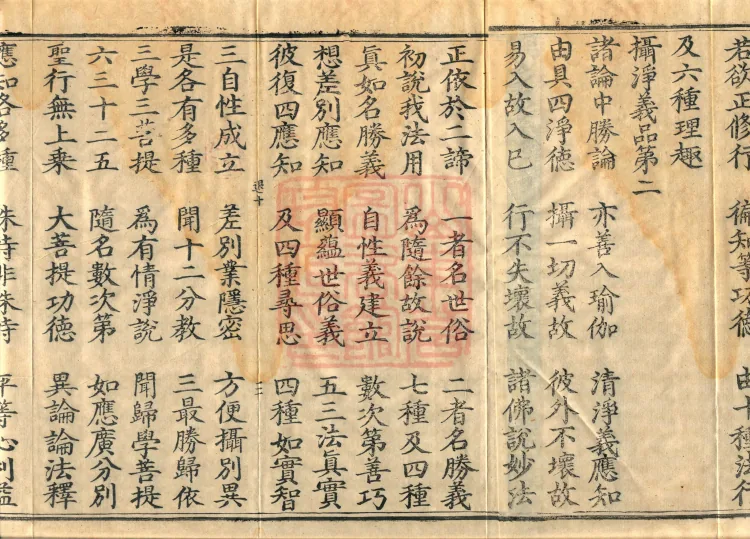 若欲正修行　徧知等功德　由十種法行
及六種理趣
攝淨義品第二
諸論中勝論　亦善入瑜伽　清淨義應知
由具四淨德　攝一切義故　彼外不壞故
易入故入已　行不失壞故　諸佛說妙法
正依於二諦　一者名世俗　二者名勝義
初說我法用　爲隨餘故說　七種及四種
眞如名勝義　自性義建立　數次第善巧
想差別應知　顯蘊世俗義　五三法眞實
彼復四應知　及四種尋思　四種如實智
三自性成立　差別業隱密　方便攝別異
是各有多種　聞十二分教　三最勝歸依
三學三菩提　爲有情淨說　聞歸學菩提
六三十二五　隨名數次第　如應廣分別
聖行無上乗　大菩提功德　異論論法釋
應知各多種　殊特非殊特　平等心利益